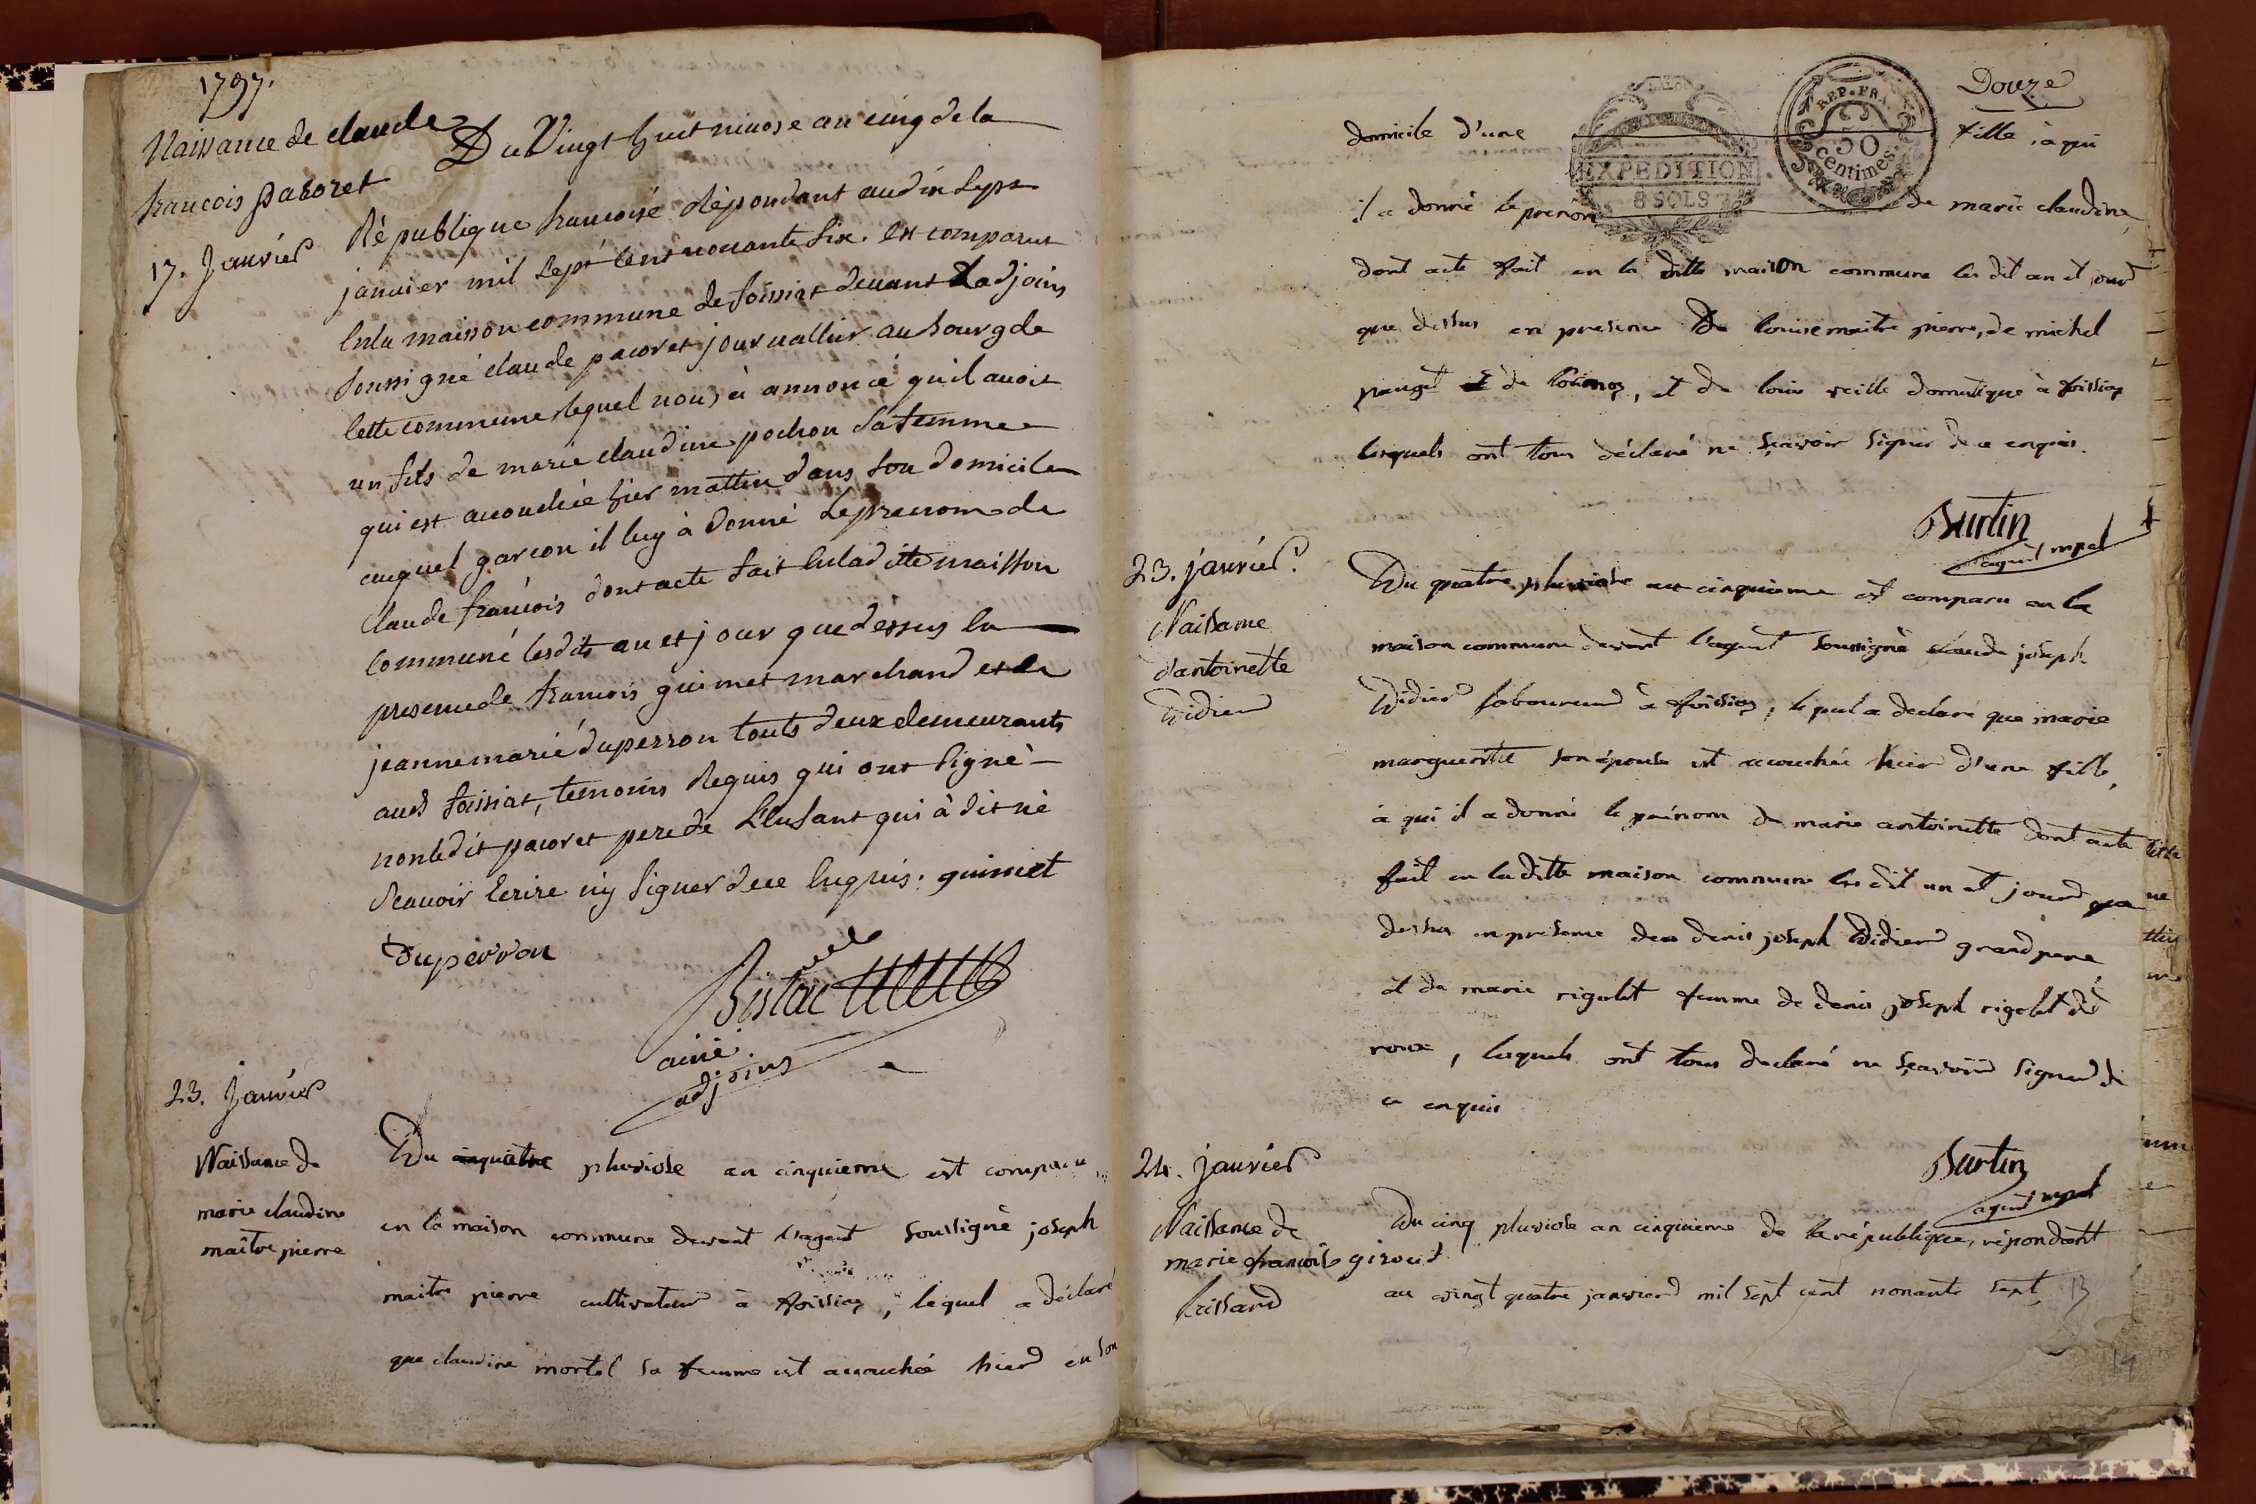 1797.
Naissance de claude
francois pacoret
17. Janvier
Du Vingt huit nivose an cinq de la
République francoisé répondant au dix sept
janvier mil sept cent nonante six. Est comparut
en la maison commune de foissiat devant L'adjoins
soussigné claude pacoret journallier au bourg de
cette commune lequel nous à annoncé qu'il avoit
un fils de marie claudine pochon sa femme
qui est acouchée hier mattin dans son domicile
auquel garcon il luy à donné Le prenom de
claude francois dont acte fait en la ditte maison
communé lesdits an et jour que dessus en
presence de francois guimet marchand et de
jeanne marié duperron touts deux demeurants
aud foissiat, temoins Requis qui ont signé
non ledit pacoret pere de L'enfant qui à dit né
scavoir Ecrire ny signer de ce Enquis. guimet
Duperron
ainé
adjoins
23. Janvier
Naissance de
marie claudine
maitre pierre
Du quatre pluviose an cinquieme est comparu
en la maison commune devant l'agent soussigné joseph
maitre pierre cultivateur à foissia, lequel a déclaré
que claudine mortel sa femme est acouchée hier en son
Douze
REP. FRA.
50
centimes.
EXPEDITION
8 SOLS
domicile d'une fille, à qui
il a donné le prenom de marie claudine
dont acte fait en la ditte maison commune les dit an et jour
que dessus en presence De louise maitre pierre, de michel
et de louis domestique à foissia
lesquels ont tous déclaré ne sçavoir signer de ce enquis.
Burtin
agent mpal
23. janvier.
Naissance
d'antoinette
Didier
Du quatre pluviose an cinquieme est comparu en la
maison commune devant l'agent soussigné claude joseph
Didier laboureur à foissia, lequel a declaré que marie
marguerite son épouse est acouchée hier d'une fille,
à qui il a donné le prénom de marie antoinette dont acte
fait en la ditte maison commune les dit an et jour que
dessus en presence de denis joseph Didier grand pere
et de marie rigolet femme de denis joseph rigolet dé
roux, lesquels ont tous declaré ne sçavoir signer de
ce enquis
Burtin
agent mpal
24. janvier
Naissance de
marie francoise giroud
brissard
Du cinq pluviose an cinquieme de la république, répondant
au vingt quatre janvier mil sept cent nonante sept